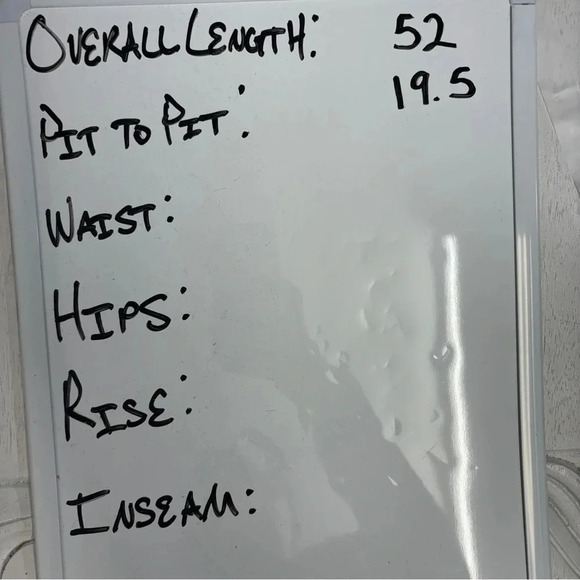 OVERALL LENGTH: 52
PIT TO PIT: 19.5
WAIST:
HIPS:
RISE:
INSEAM: